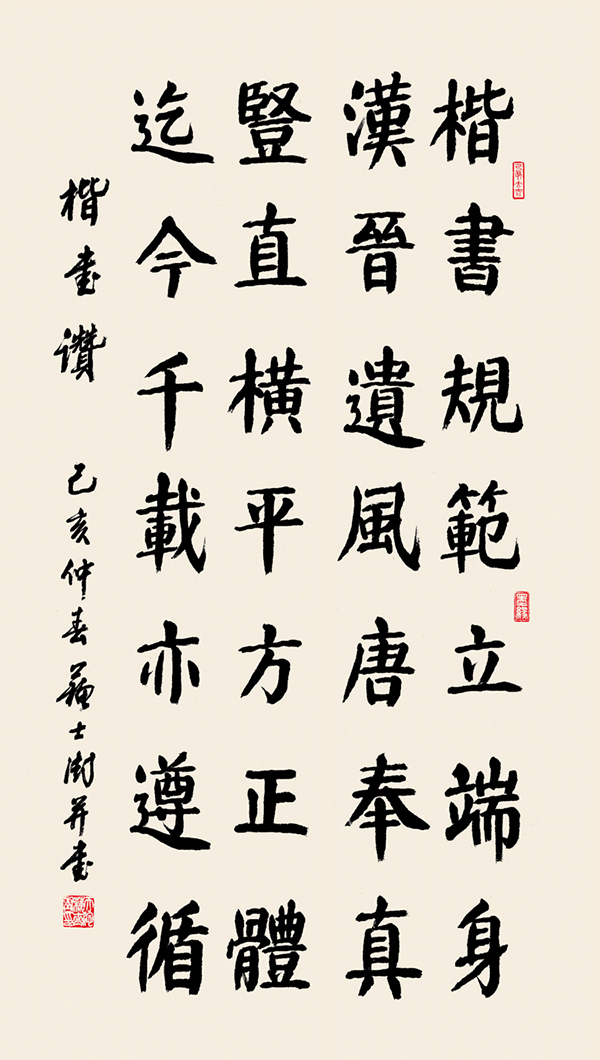 楷書規範立端身
漢晉遺風唐奉真
豎直橫平方正體
迄今千載亦遵循
楷書讚 己亥仲春蘇士澍并書